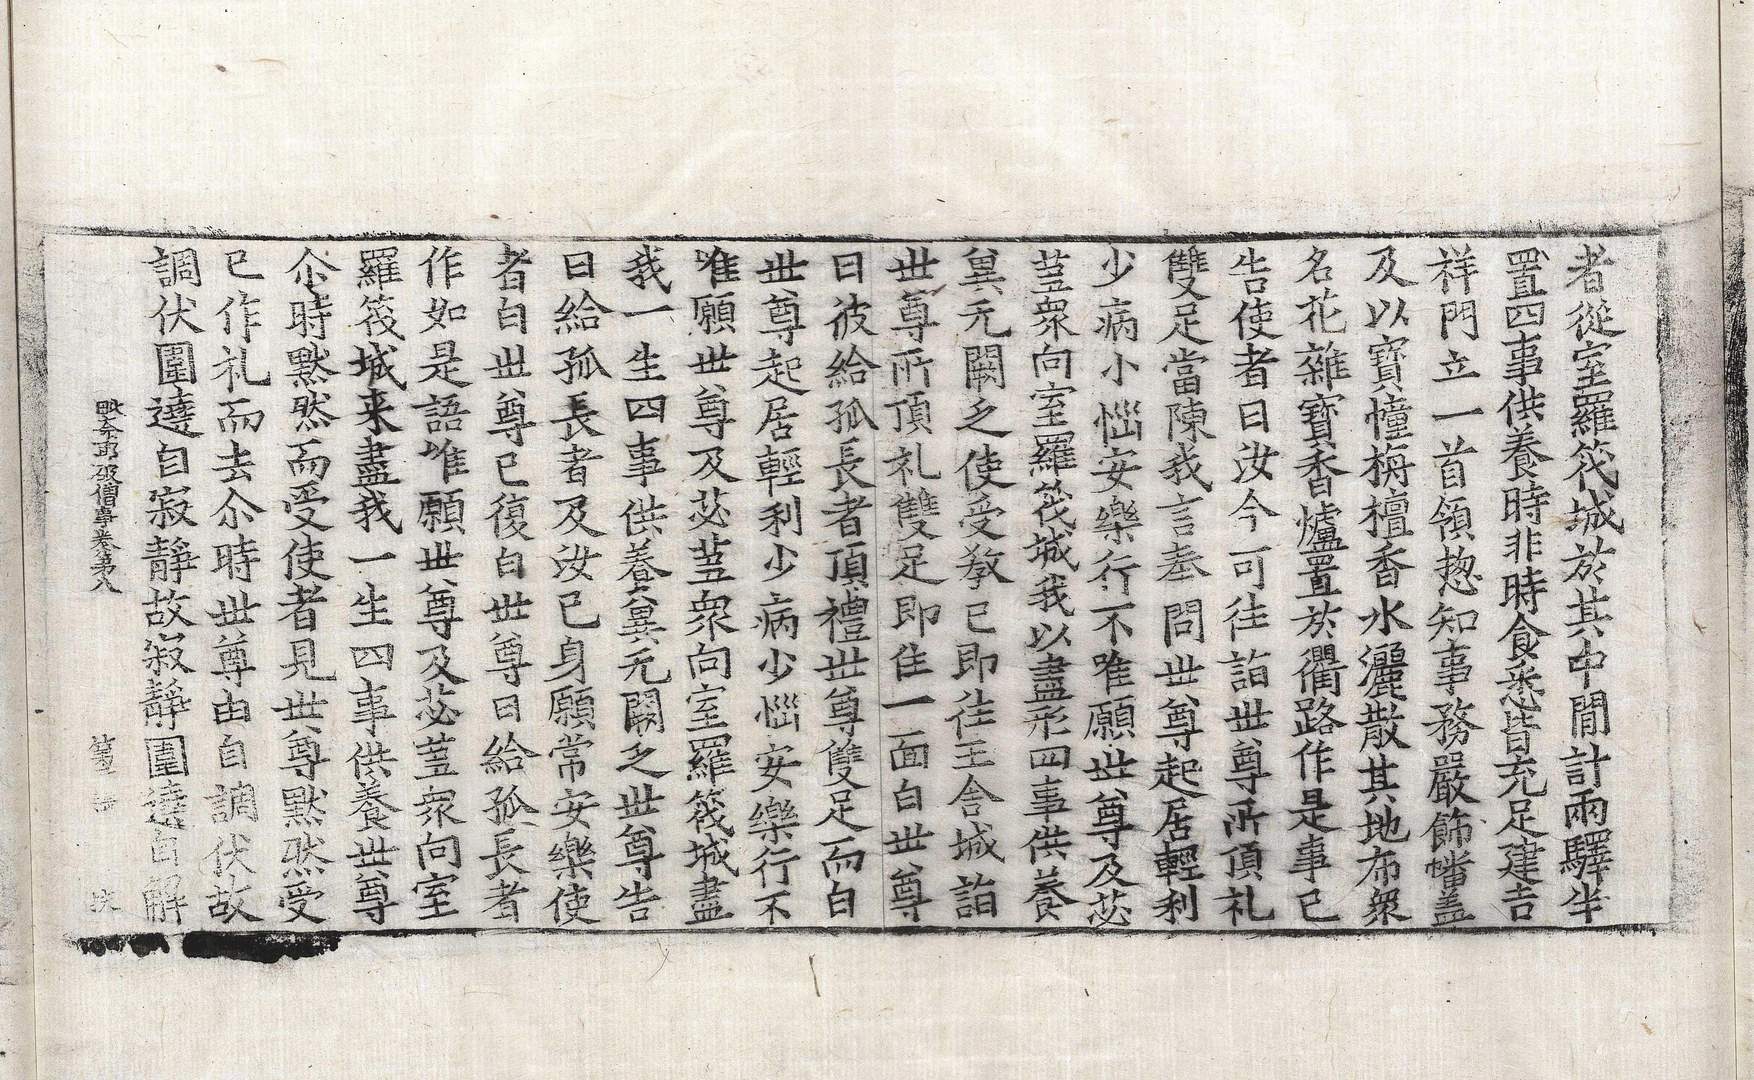 者從室羅筏城於其中閒計兩驛半
置四事供養時非時食悉皆充足建吉
祥門立一首領揔知事務嚴飾幡盖
及以寶幢栴檀香水灑散其地布衆
名花雜寶香爐置於衢路作是事已
告使者曰汝今可往詣世尊所頂礼
雙足當陳我言奉問世尊起居輕利
少病小惱安樂行不唯願世尊及苾
蒭衆向室羅筏城我以盡形四事供養
冀无闕乏使受教已即往王舍城詣
世尊所頂礼雙足即住一面白世尊
曰彼給孤長者頂禮世尊雙足而白
世尊起居輕利少病少惱安樂行不
唯願世尊及苾蒭衆向室羅筏城盡
我一生四事供養冀无闕乏世尊告
曰給孤長者及汝已身願常安樂使
者白世尊已復白世尊曰給孤長者
作如是語唯願世尊及苾蒭衆向室
羅筏城来盡我一生四事供養世尊
尒時黙然而受使者見世尊黙然受
已作礼而去尒時世尊由自調伏故
調伏圍遶自寂靜故寂靜圍遶自解
毗奈耶破僧事卷第八